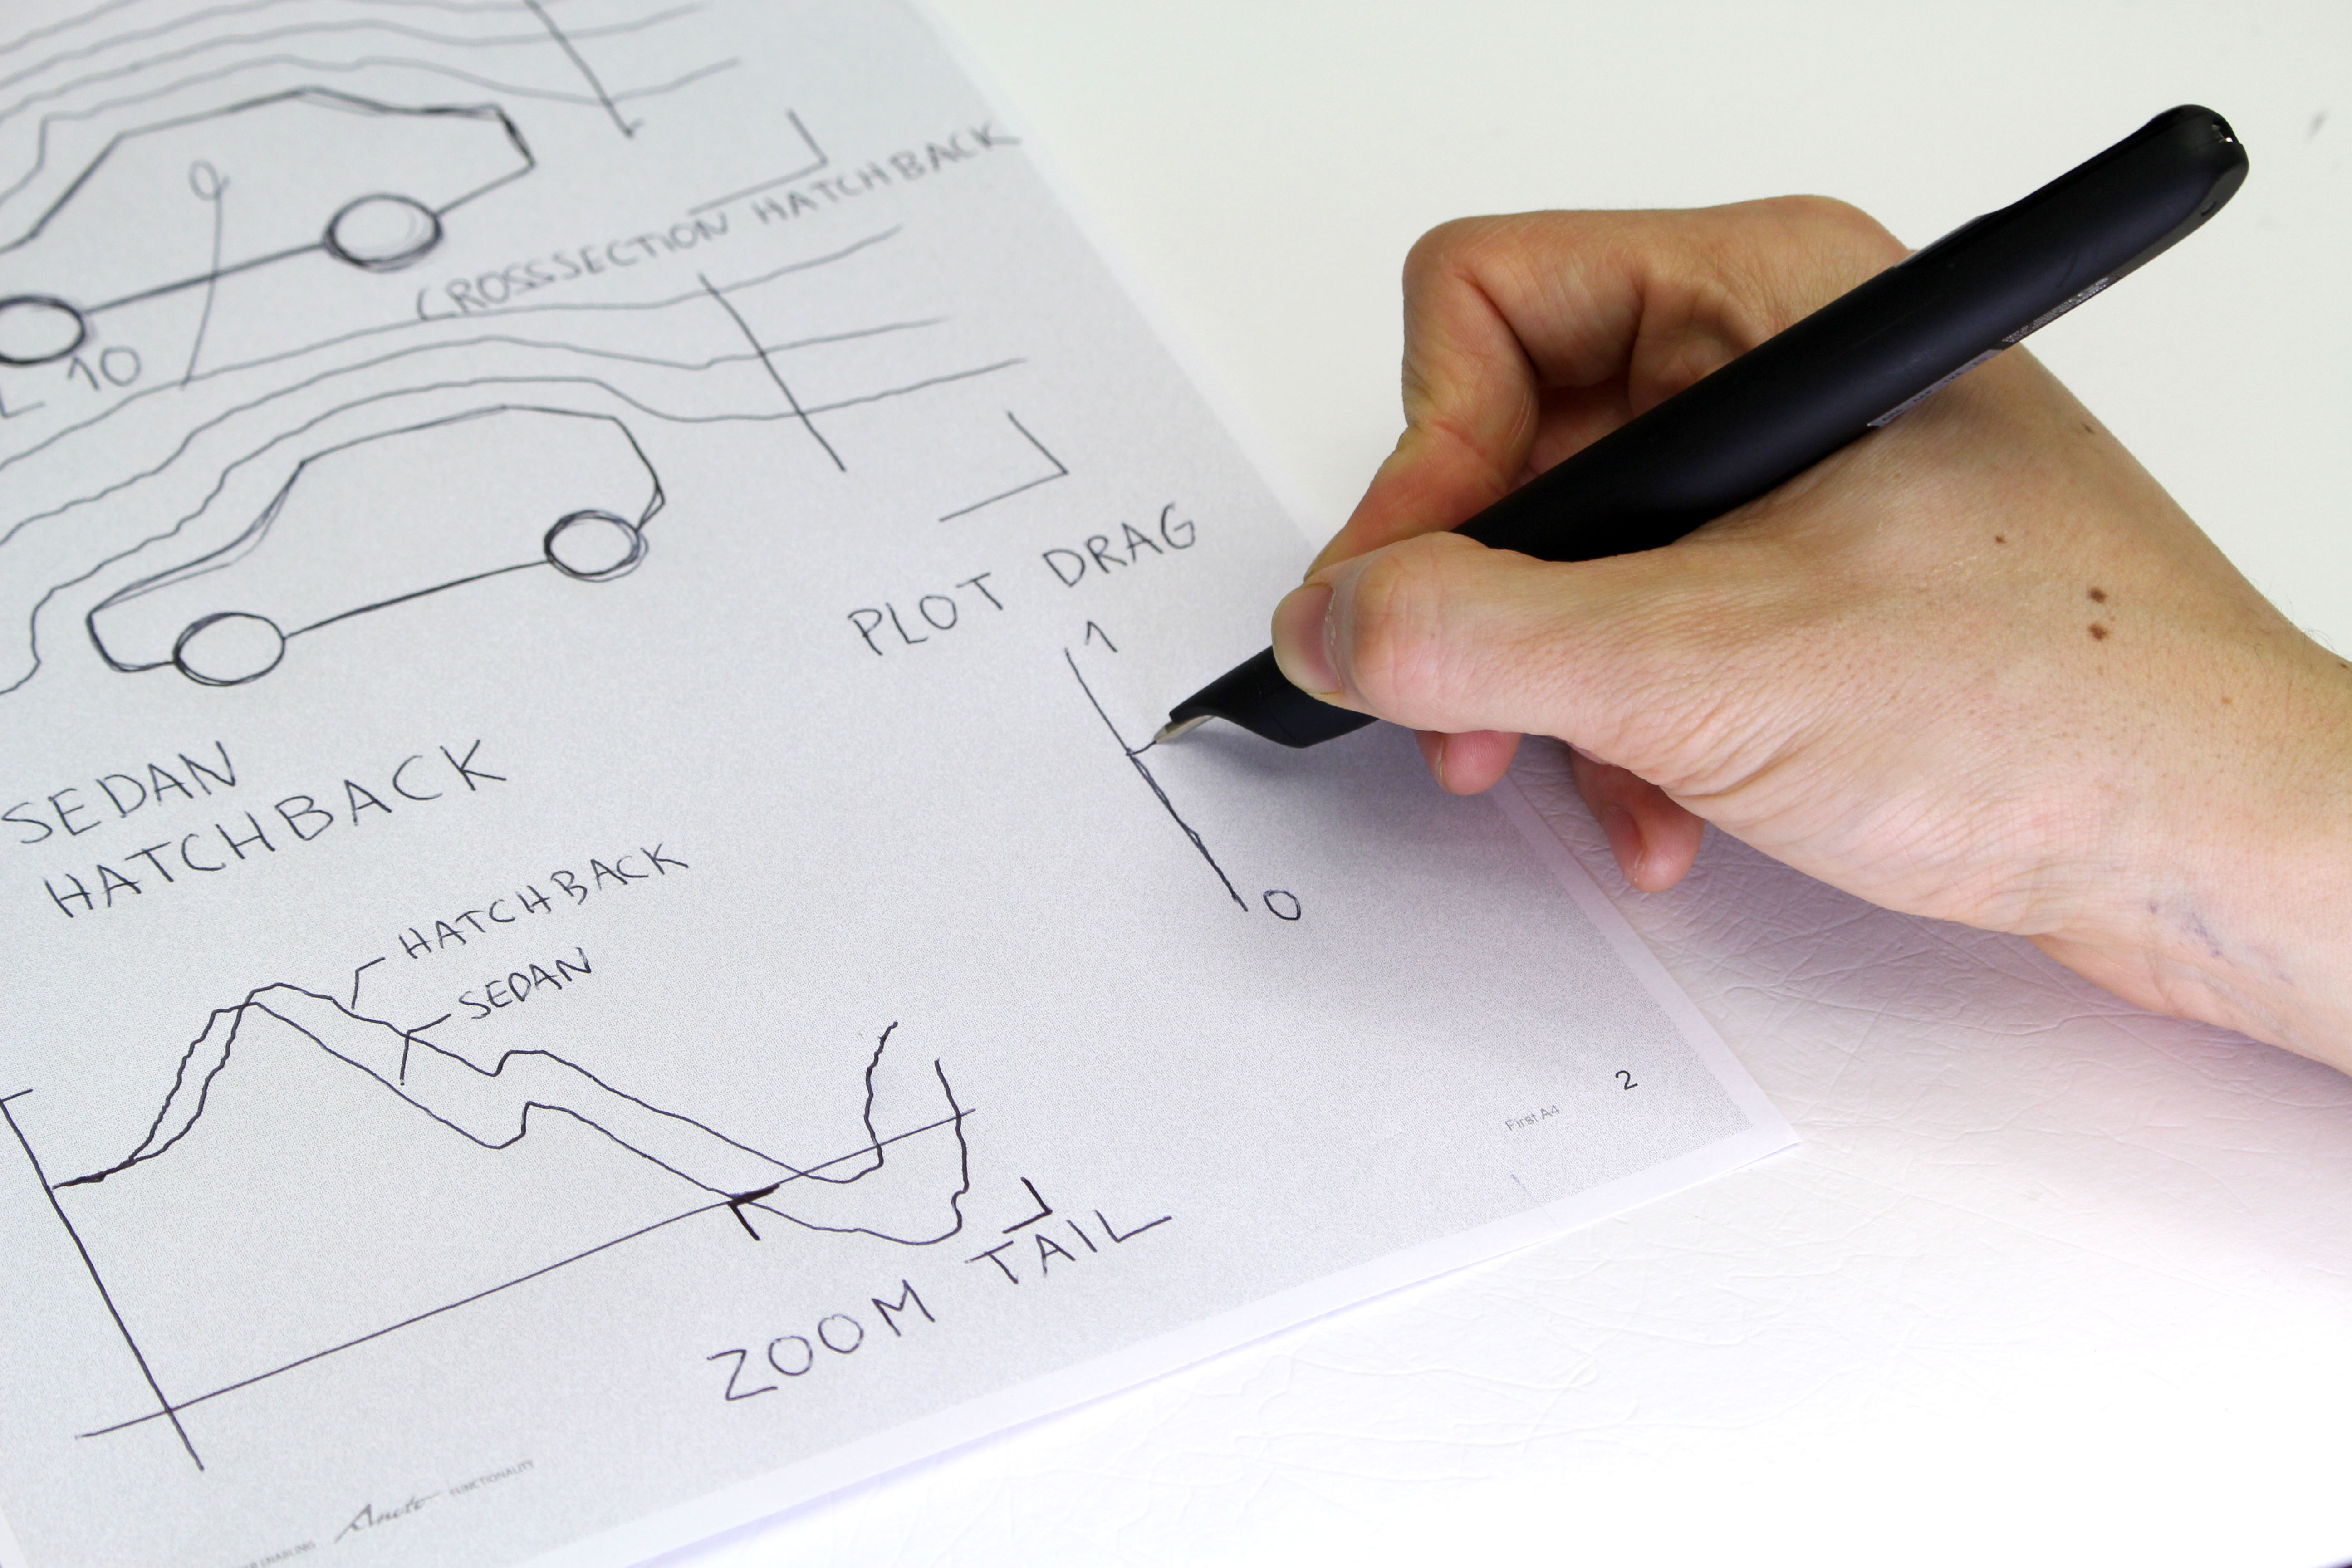 CROSSSECTION HATCHBACK
10
PLOT DRAG
1
0
SEDAN
HATCHBACK
HATCHBACK
SEDAN
ZOOM TAIL
2
First A4
Anoto FUNCTIONALITY
ENABLING